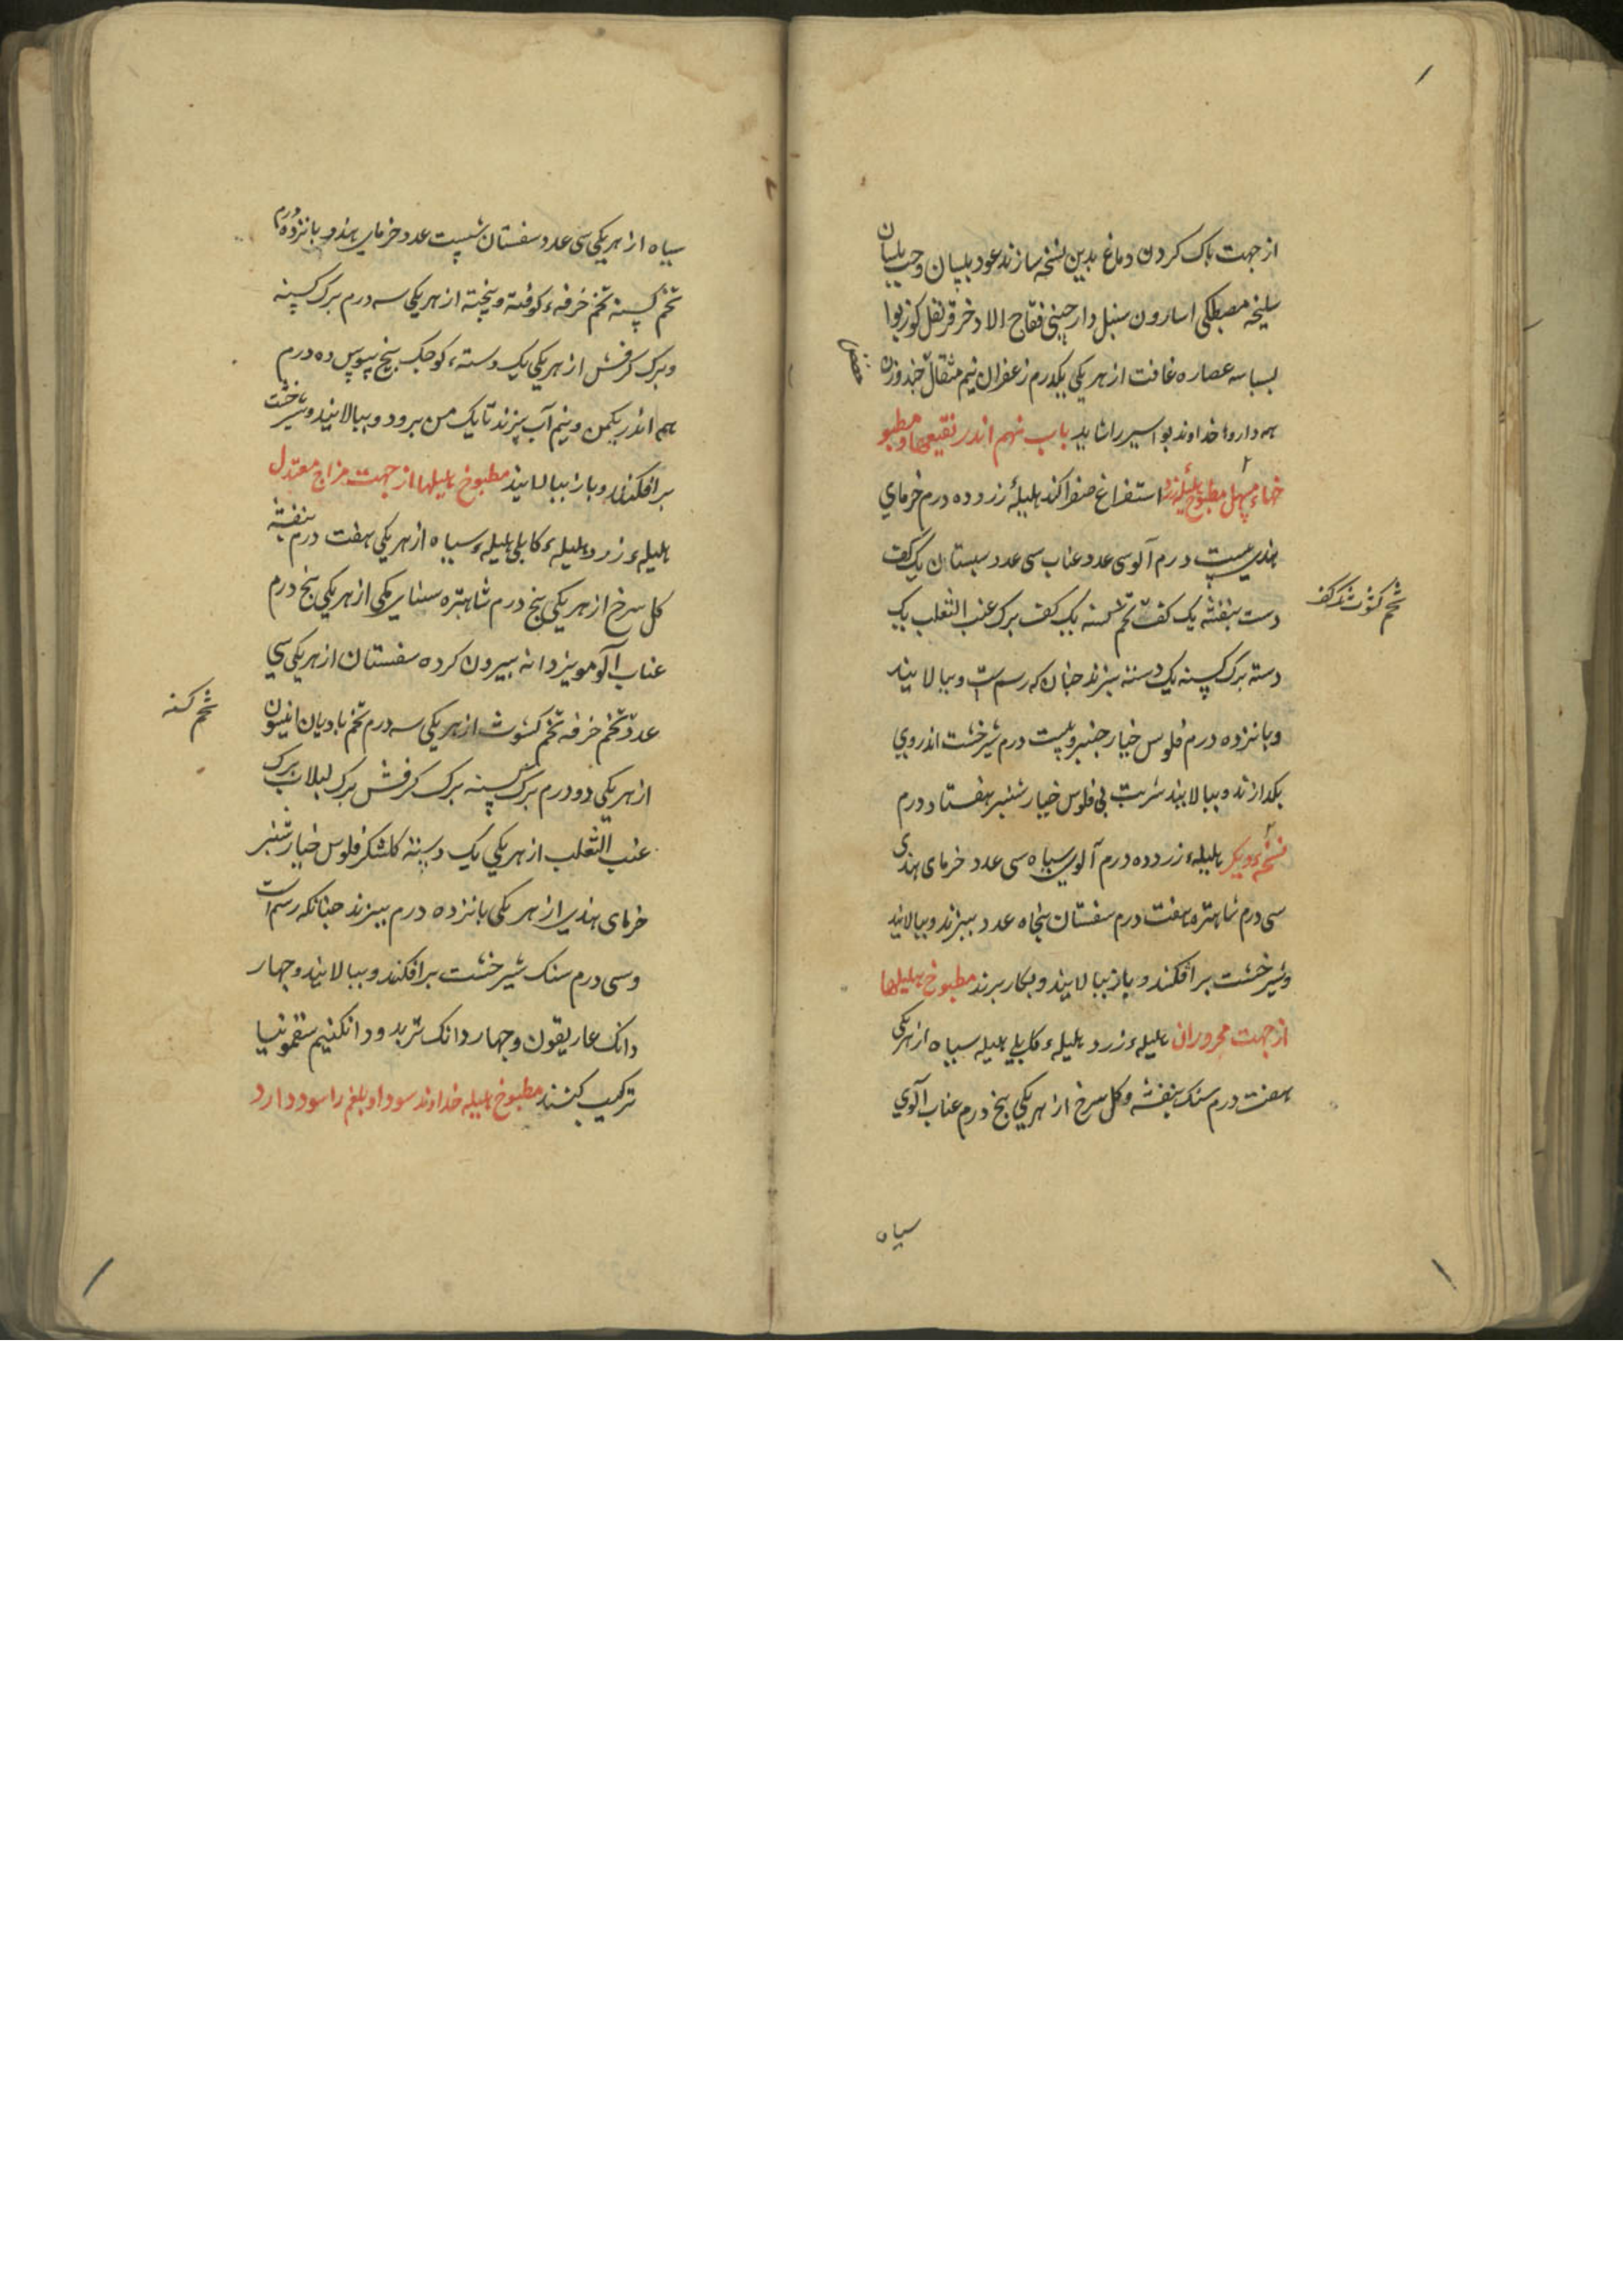 از جهت باک کردن دماغ بدین نسخه سازند عود بلسان وحب بلسان
سلیخه مصطکی اسارون سنبل دارچینی فقاح الاذخر قرنفل کوزبوا
بسباسه عصاره غافت از هریکی یکدرم زعفران نیم مثقال جند وزن
همه داروها خداوند بواسیر را شاید باب نهم اندر نقیعها و مطبو
خهاء مسهل مطبوخ هلیلهٔ زرد استفراغ صفرا کند هلیلهٔ زرد ده درم خرمای
هندی بیست درم آلو سی عدد عناب سی عدد سبستان یک کف
دست بنفشه یک کف تخم کسنه یک کف برک عنب الثعلب یک
تخم کشوث یک کف
دسته برک کسنه یک دسته ببزند جنان که رسمست و ببالایند
وبانزده درم فلوس خیارجنبر وبیست درم شیرخشت اندر وی
بکدازند و ببالایند شربت بی فلوس خیارشنبر هفتاد درم
نسخهٔ دیکر هلیلهء زرد ده درم آلوی سیاه سی عدد خرمای هندی
سی درم شاهتره هفت درم سفستان بنجاه عدد ببزند و ببالایند
وشیرخشت برافکنند و باز ببالایند و بکار برند مطبوخ هلیلها
از جهت محروران هلیلهء زرد هلیلهء کابلی هلیله سیاه از هریکی
هفت درم سنک بنفشه و کل سرخ از هریکی بنج درم عناب آلوی
سیاه
سیاه از هریکی سی عدد سفستان شست عدد خرمای هندو بانزده درم
تخم کسنه تخم خرفهء کوفته و بیخته از هریکی سه درم برک کسنه
وبرک کرفش از هریکی یک دسته کوجک بیخ سوس ده درم
همه اندر یکمن ونیم آب ببزند تا یک من برود و ببالایند وشیرخشت
برافکنند و باز ببالایند مطبوخ هلیلها از جهت مزاج معتدل
هلیلهء زرد هلیلهء کابلی هلیلهء سیاه از هریکی هفت درم بنفشه
کل سرخ از هریکی بنج درم شاهتره سنای مکی از هریکی بنج درم
عناب آلو مویز دانه بیرون کرده سفستان از هریکی سی
عدد تخم خرفه تخم کشوث از هریکی سه درم تخم بادیان انیسون
تخم کسنه
از هریکی دو درم برک کسنه برک کرفش برک لبلاب برک
عنب الثعلب از هریکی یک دسته کلشکر فلوس خیارشنبر
خرمای هندی از هریکی بانزده درم ببزند جنانکه رسم است
وسی درم سنک شیرخشت برافکنند و ببالایند وجهار
دانک غاریقون وجهار دانک تربد ودانکنیم سقمونیا
ترکیب کنند مطبوخ هلیله خداوند سودا و بلغم را سود دارد